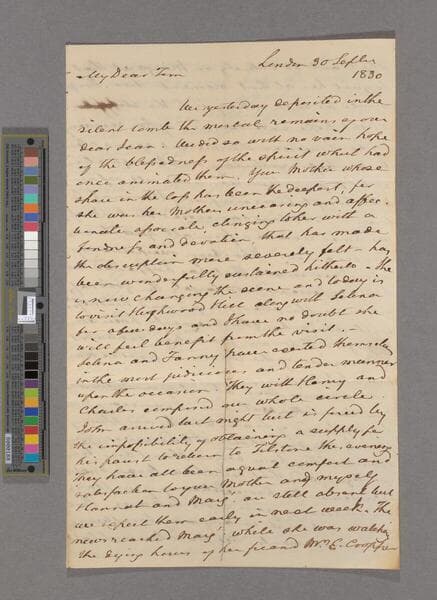 London 30 Septbr
1830
My Dear Tom
We yesterday deposited in the
silent tomb the mortal remains of our
dear Jean. We did so with no vain hope
of the blessedness of the spirit which had
once animated them. Your Mother whose
share in the loss has been the deepest, for
she was her Mothers unceasing and affec-
tionate associate, clinging to her with a
fondness and devotion, that has made
the deprivation more severely felt - has
been wonderfully sustained hitherto. She
is now changing the scene and today is
to visit Highwood Hill along with Selina
for a few days and I have no doubt she
will feel benefit from the visit. -
Selina and Fanny have exerted themselves
in the most judicious and tender manner
upon the occasion. They with Henry and
Charles compose our whole circle
John arrived last night but is forced by
the impossibility of obtaining a supply for
his parish to return to this evening
They have all been a great comfort and
satisfaction to your Mother and myself
Hannah and Mary are still absent but
we expect them early in next week. The
news reached Mary while she was watching
the dying hours of her friend Mrs E. Cropper